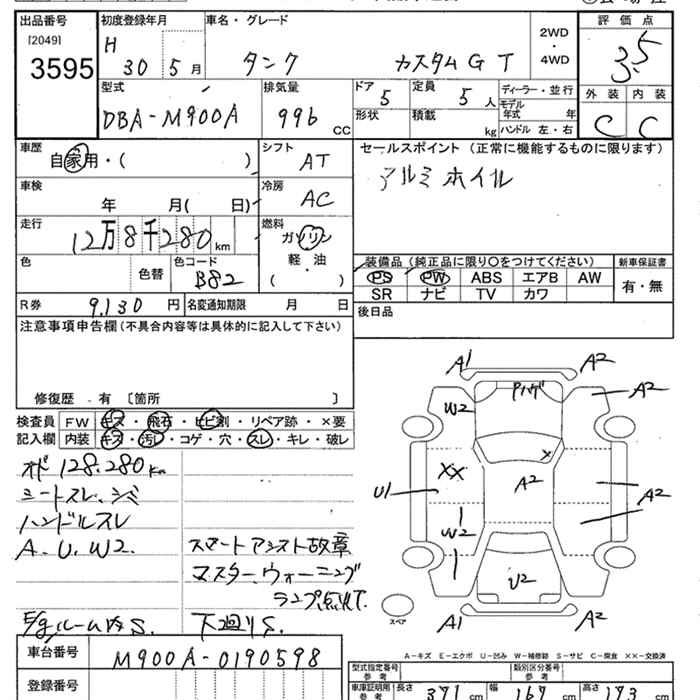 出品番号
[2049]
3595
初度登録年月
H 30 5月
車名・グレード
タンク カスタムGT
2WD
・
4WD
評価点
3.5
型式
DBA-M900A
排気量
996 CC
ドア 5
形状
定員 5人
積載 kg
ディーラー・並行
モデル年式 年
ハンドル 左・右
外装 内装
C C
車歴
自家用・( )
シフト
AT
セールスポイント (正常に機能するものに限ります)
アルミホイル
車検
年 月( 日)
冷房
AC
走行
12万8千280km
燃料
ガソリン
軽・油
( )
色
色替
色コード
B82
装備品 (純正品に限り〇をつけてください)
PS PW ABS エアB AW
SR ナビ TV カワ
新車保証書
有・無
R券 9,130円
名変通知期限 月 日
後日品
注意事項申告欄(不具合内容等は具体的に記入して下さい)
修復歴 - 有 〔箇所 〕
検査員 FW キズ・飛石・ヒビ割・リペア跡・×要
記入欄 内装 キズ・汚レ・コゲ・穴・スレ・キレ・破レ
オド128.280km
シートスレ、シミ
ハンドルスレ
A.U.W2. スマートアシスト故障
マスターウォーニング
ランプ点灯.
E/gルームサビS. 下廻りS.
車台番号 M900A-0190598
登録番号
A1 A2
W2 Pハゲ A2
XX ×
U1 A2 A2
W2
U2
A1 A2
スペア
A-キズ E-エクボ U-凹み W-補修跡 S-サビ C-腐食 XX-交換済
型式指定番号 参考
類別区分番号 参考
車庫証明用 参考
長さ 371 cm 幅 167 cm 高さ 173 cm